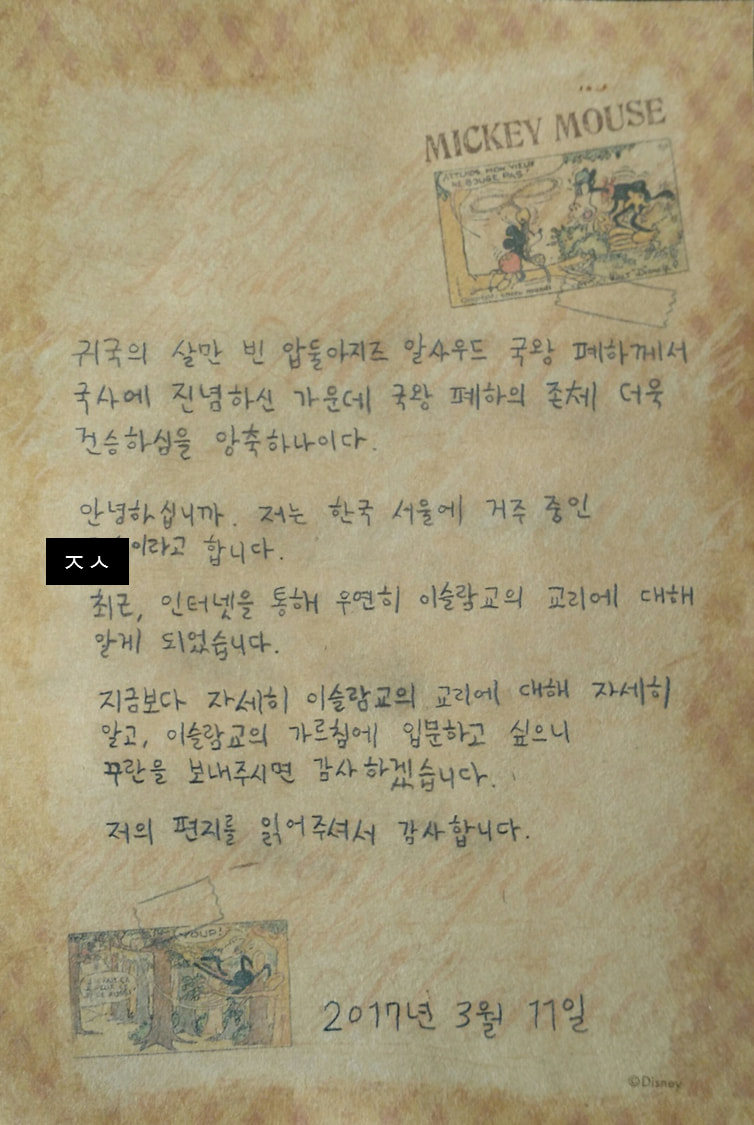 MICKEY MOUSE
ATTENDS, MON VIEUX
NE BOUGE PAS!
WALT DISNEY
귀국의 살만 빈 압둘아지즈 알사우드 국왕 폐하께서
국사에 진념하신 가운데 국왕 폐하의 존체 더욱
건승하심을 앙축하나이다.
안녕하십니까. 저는 한국 서울에 거주 중인
ㅈㅅ이라고 합니다.
최근, 인터넷을 통해 우연히 이슬람교의 교리에 대해
알게 되었습니다.
지금보다 자세히 이슬람교의 교리에 대해 자세히
알고, 이슬람교의 가르침에 입문하고 싶으니
꾸란을 보내주시면 감사하겠습니다.
저의 편지를 읽어주셔서 감사합니다.
YOUP!
2017년 3월 11일
©Disney